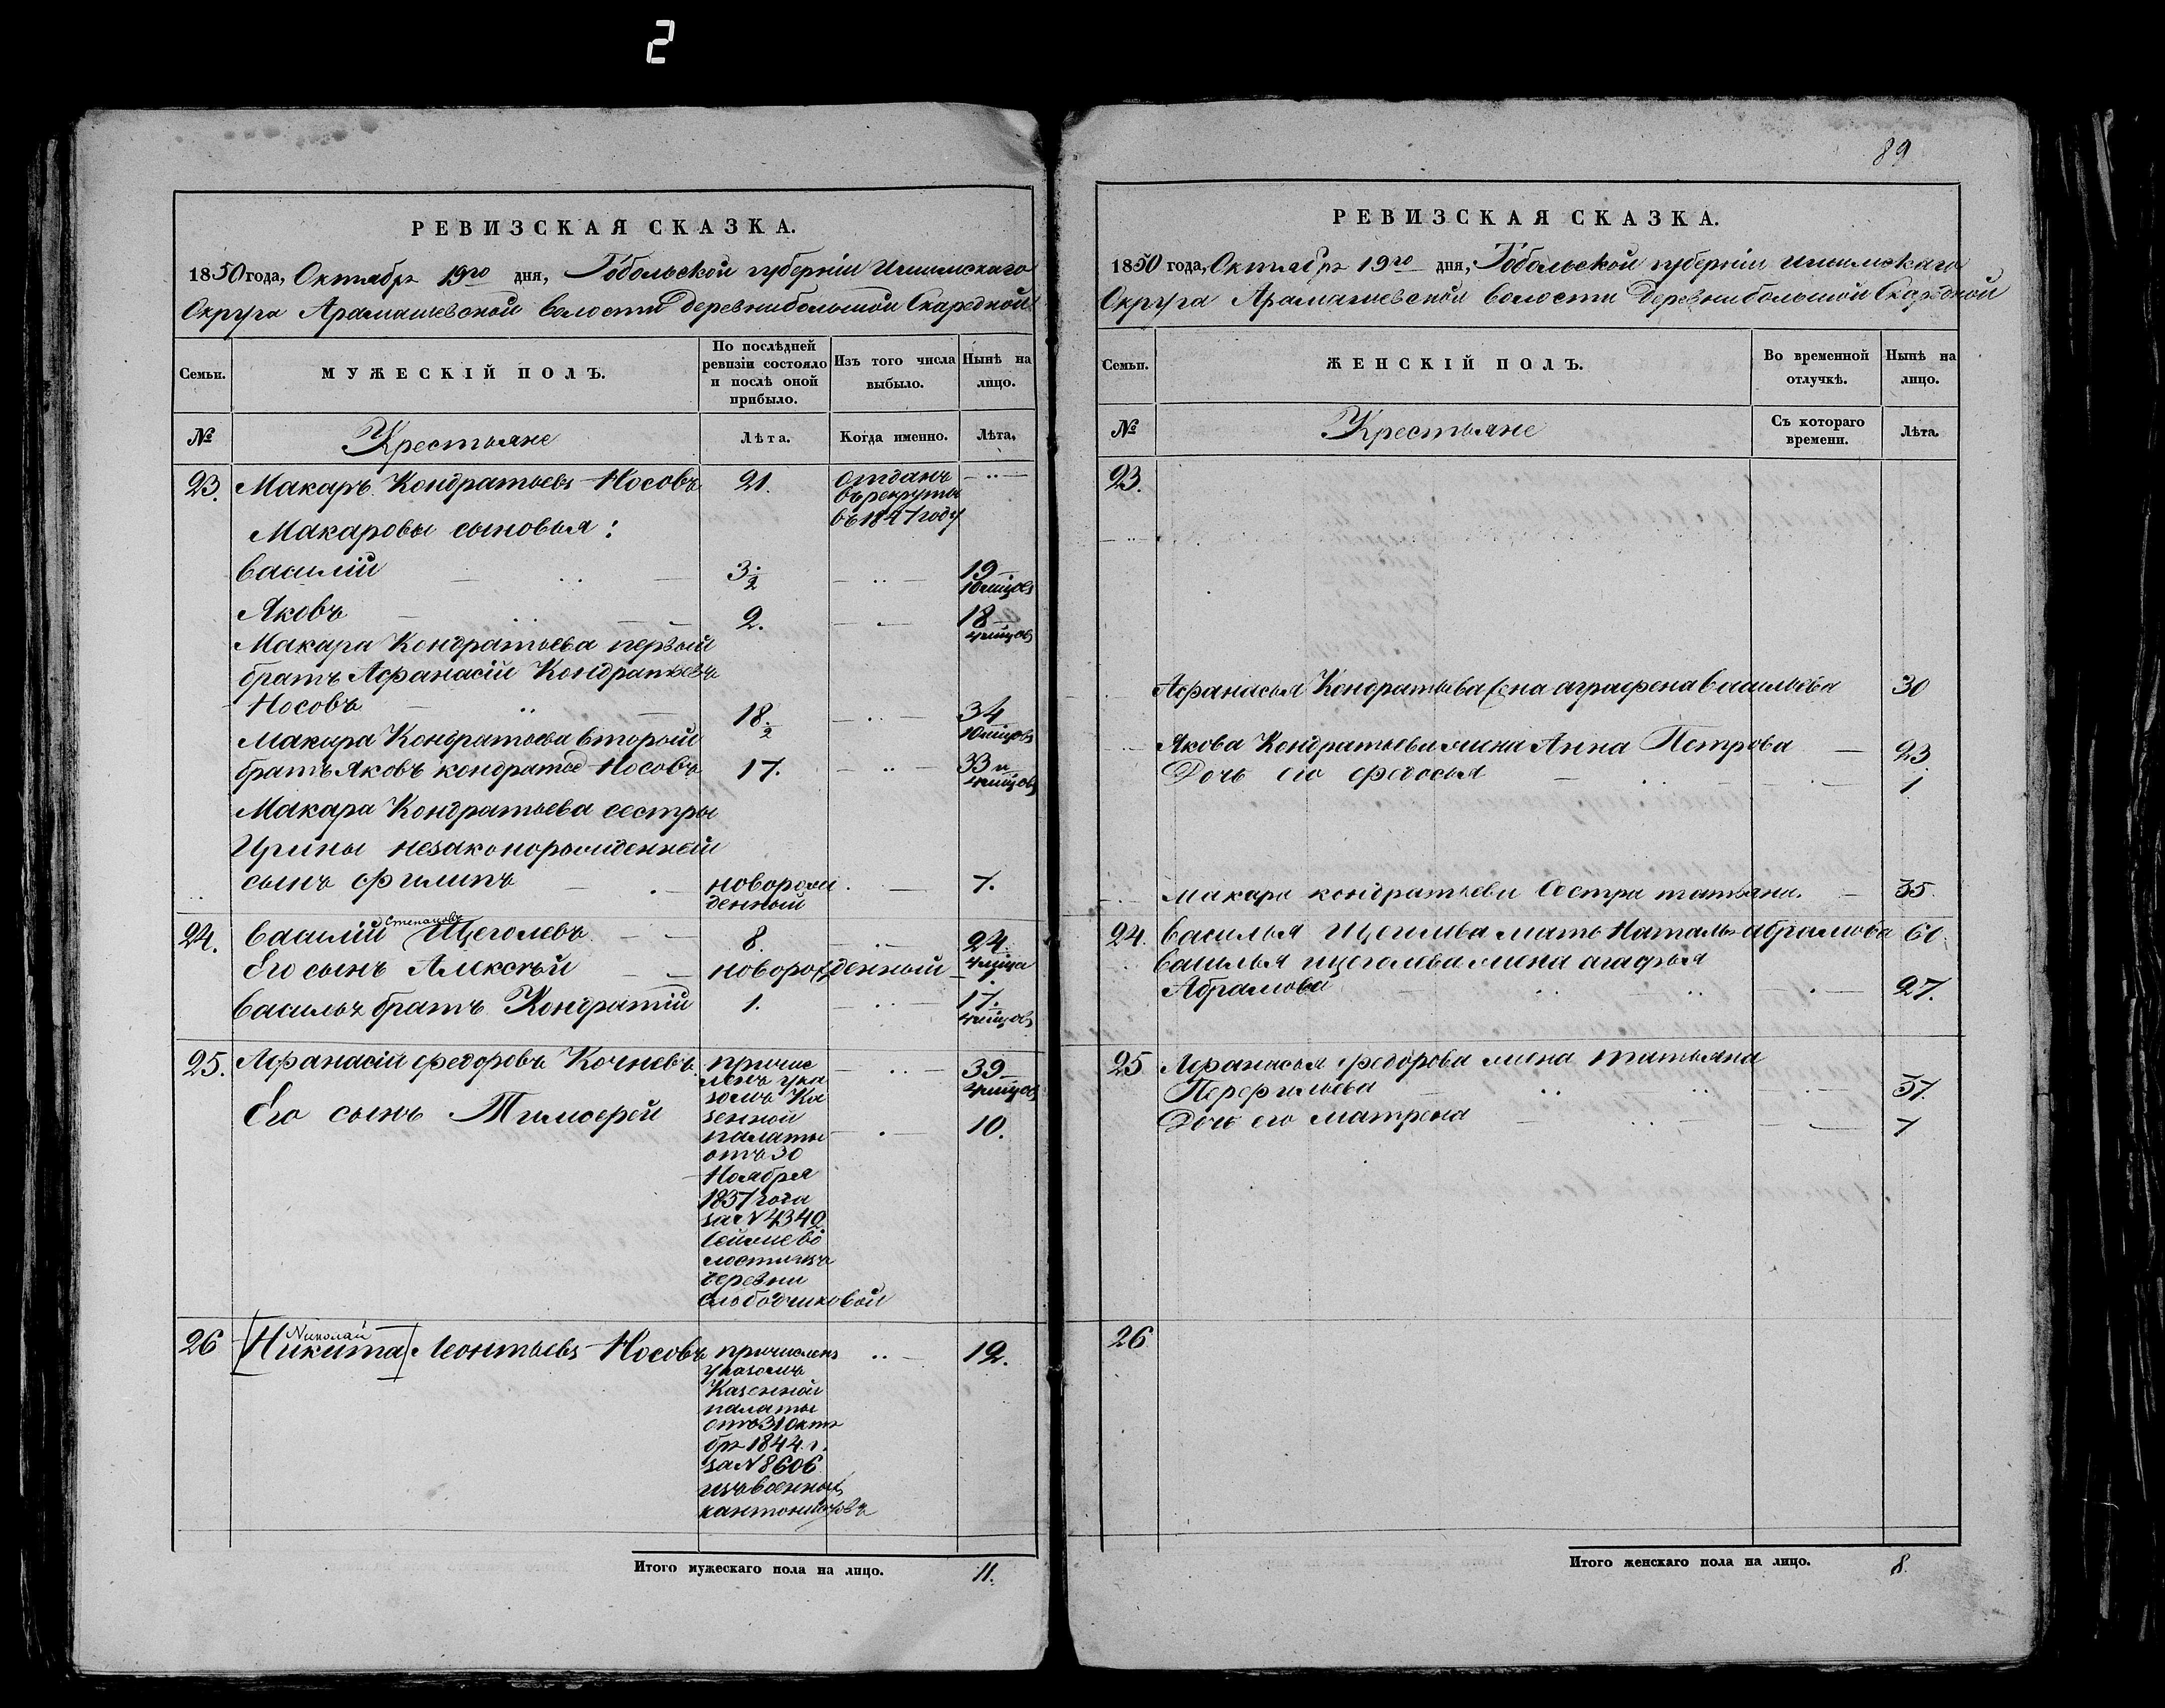 2
89
РЕВИЗСКАЯ СКАЗКА.
1850 года, Октября 19го дня, Тобольской губерніи Ишимскаго
Округа Арамашевской волости Деревни большой Скаредной
Семьи.
МУЖЕСКІЙ ПОЛЪ.
По послѣдней
ревизіи состояло
и послѣ оной
прибыло.
Изъ того числа
выбыло.
Нынѣ на
лицо.
№
Крестьяне
Лѣта.
Когда именно.
Лѣта.
23. Макаръ Кондратьевъ Носовъ 21. отданъ
въ рекруты
въ 1847 году
Макаровы сыновья:
Василій 3½ 19
10 мцовъ
Яковъ 2. 18
4 мцовъ
Макара Кондратьева первой
братъ Афанасій Кондратьевъ
Носовъ 18½ 34
10 мцовъ
Макара Кондратьева второй
братъ Яковъ кондратьевъ Носовъ 17. 33 и
4 мцовъ
Макара Кондратьева сестры
Ирины незаконорожденной
сынъ Филипъ новорож
денный 7.
24. Василій Степановъ Щеголевъ 8. 24.
4 мца
Его сынъ Алексѣй новорожденный 1.
Васильѣ братъ Кондратій 1. 17.
4 мцовъ
25. Афанасій федоровъ Кочневъ причис 39
ленъ ука 4 мцовъ
зомъ Ка
Его сынъ Тимофей зенной 10.
палаты
отъ 30
Ноября
1837 года
за N 4349
сей же во
лости изъ
деревни
Слободчиковой
26 [Никита] Николай Леонтьевъ Носовъ причисленъ 12.
указомъ
Казенной
палаты
отъ 31 октя
бря 1844 г.
за N 8606
изъ военныхъ
кантонистовъ
Итого мужескаго пола на лицо. 11.
РЕВИЗСКАЯ СКАЗКА.
1850 года, Октября 19го дня, Тобольской губерніи ишимскаго
Округа Арамашевской волости Деревни большой Скаредной
Семьи.
ЖЕНСКІЙ ПОЛЪ.
Во временной
отлучкѣ.
Нынѣ на
лицо.
№
Крестьяне
Съ котораго
времени.
Лѣта.
23.
Афанасья Кондратьева жена аграфена васильева 30
Якова Кондратьева жена Анна Петрова 23
Дочь его федосья 1
Макара кондратьева Сестра татьяна. 35.
24. Василья Щеголева мать Наталья абрамова 61.
Василья щеголева жена агафья
Абрамова 27.
25 Афанасья федорова жена татьяна
Перфильева 37.
Дочь его матрена 7
26
Итого женскаго пола на лицо. 8.